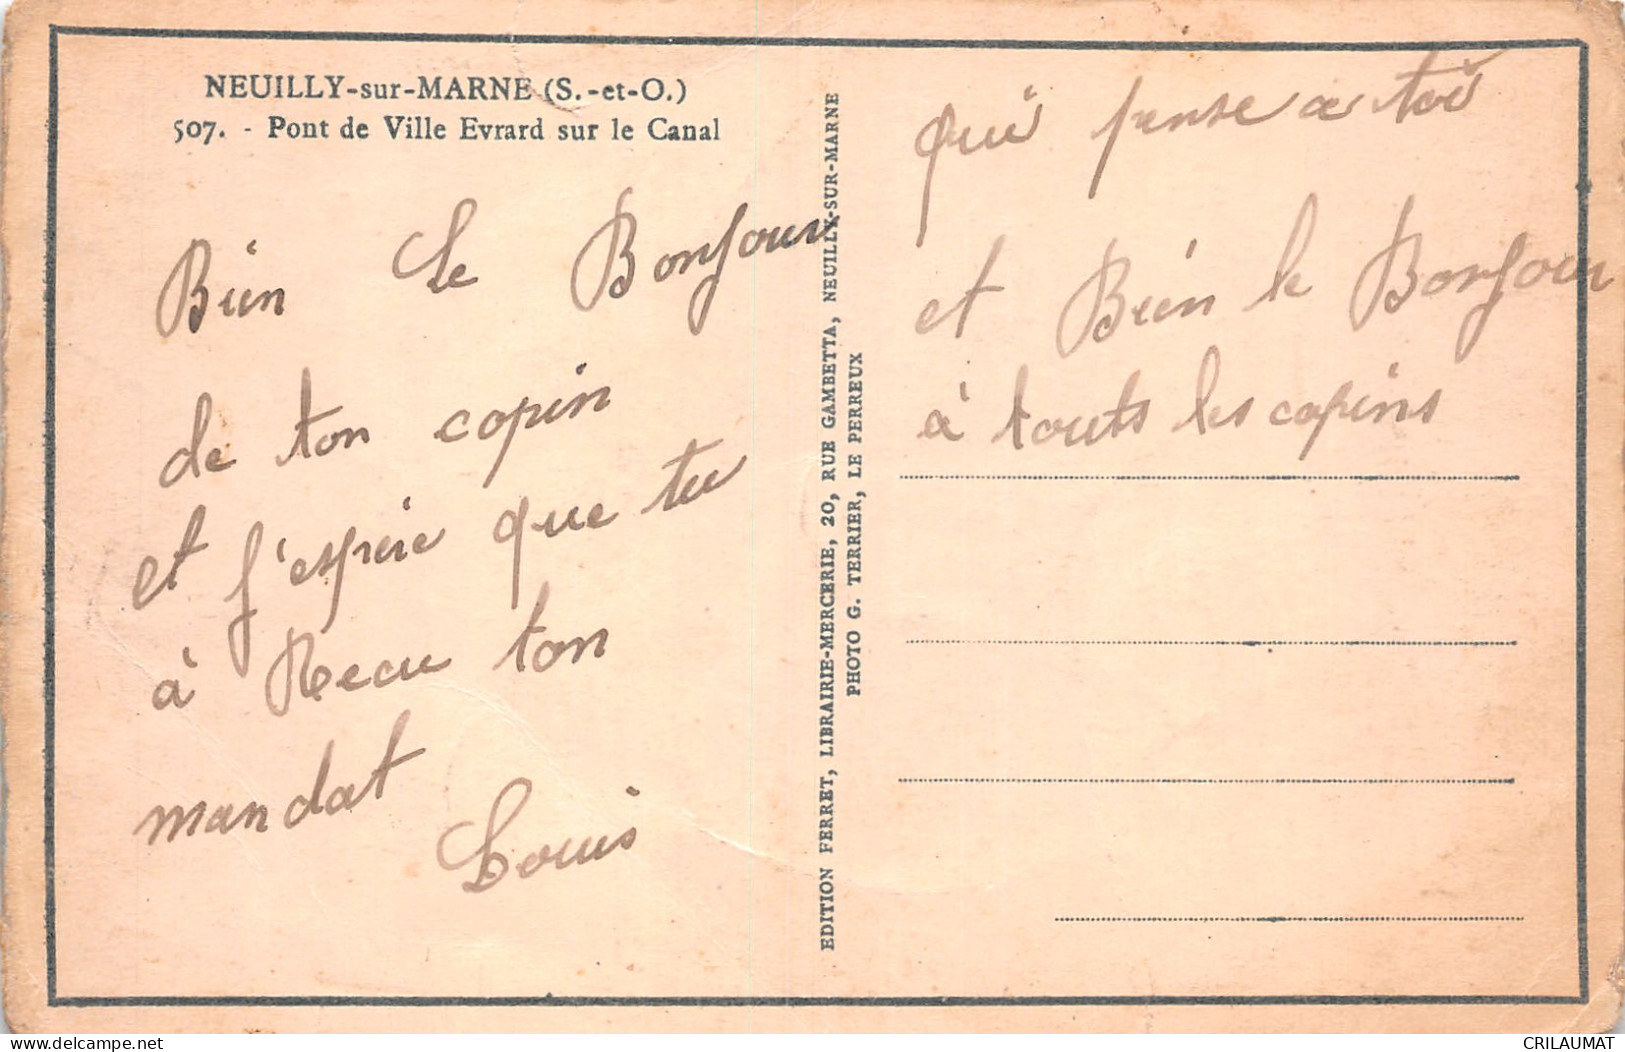 NEUILLY-sur-MARNE (S.-et-O.)
507. - Pont de Ville Evrard sur le Canal
Bien le Bonjour
de ton copin
et j'espére que tu
à Recu ton
mandat
Louis
EDITION FERRET, LIBRAIRIE-MERCERIE, 20, RUE GAMBETTA, NEUILLY-SUR-MARNE
PHOTO G. TERRIER, LE PERREUX
qui pense a toi
et Bien le Bonjour
à touts les copins
www.delcampe.net
CRILAUMAT